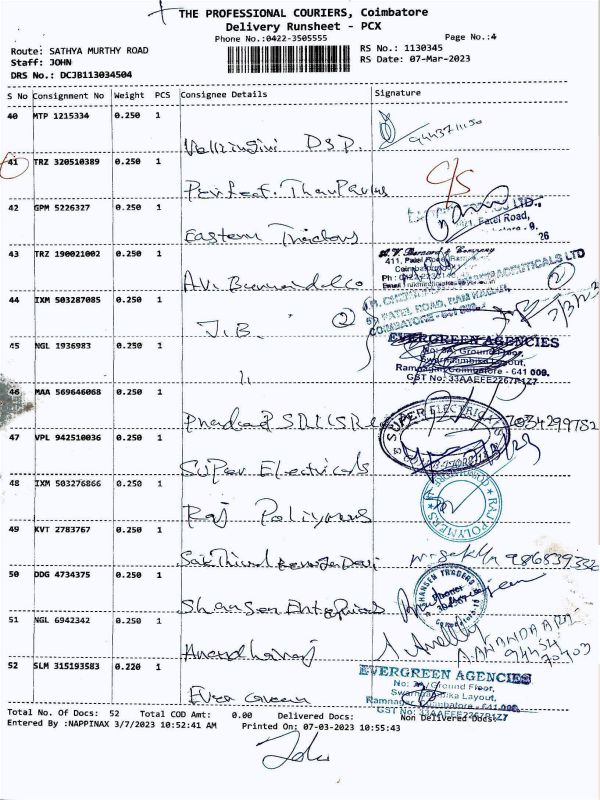 THE PROFESSIONAL COURIERS, Coimbatore
Delivery Runsheet - PCX
Phone No.:0422-3505555
Page No.:4
Route: SATHYA MURTHY ROAD
RS No.: 1130345
Staff: JOHN
RS Date: 07-Mar-2023
DRS No.: DCJB113034504
S No Consignment No Weight PCS Consignee Details Signature
40 MTP 1215334 0.250 1
Velliyingiri D.S.P.
41 TRZ 320510389 0.250 1
C/S
42 GPM 5226327 0.250 1
LTD.
Patel Road,
Eastern Traders
26
43 TRZ 190021002 0.250 1
A.V. Bernard & Company
411, Patel Road
A.V. Bernard & Co
44 IXM 503287085 0.250 1
PATEL ROAD, RAM NAGAR,
COIMBATORE
J.B. 2
45 NGL 1936983 0.250 1
EVERGREEN AGENCIES
Ground Floor,
Swarnambika Layout,
Ramnagar, Coimbatore - 641 009.
GST No: 33AAEFE2267P1Z7
46 MAA 569646068 0.250 1
47 VPL 942510036 0.250 1
SUPER ELECTRICALS
Super Electricals
48 IXM 503276866 0.250 1
RAJ POLYMERS
Raj Poliymers
49 KVT 2783767 0.250 1
50 DDG 4734375 0.250 1
SHANSEN TRADERS
Shansen Enterprises
51 NGL 6942342 0.250 1
Anandharaj
A. ANANDARAJ
94454
70403
52 SLM 315193583 0.220 1
EVERGREEN AGENCIES
Ground Floor,
Swarnambika Layout,
Ramnagar, Coimbatore - 641 009.
GST No: 33AAEFE2267P1Z7
Ever Green
Total No. Of Docs: 52 Total COD Amt: 0.00 Delivered Docs: Non Delivered Docs:
Entered By :NAPPINAX 3/7/2023 10:52:41 AM Printed On: 07-03-2023 10:55:43